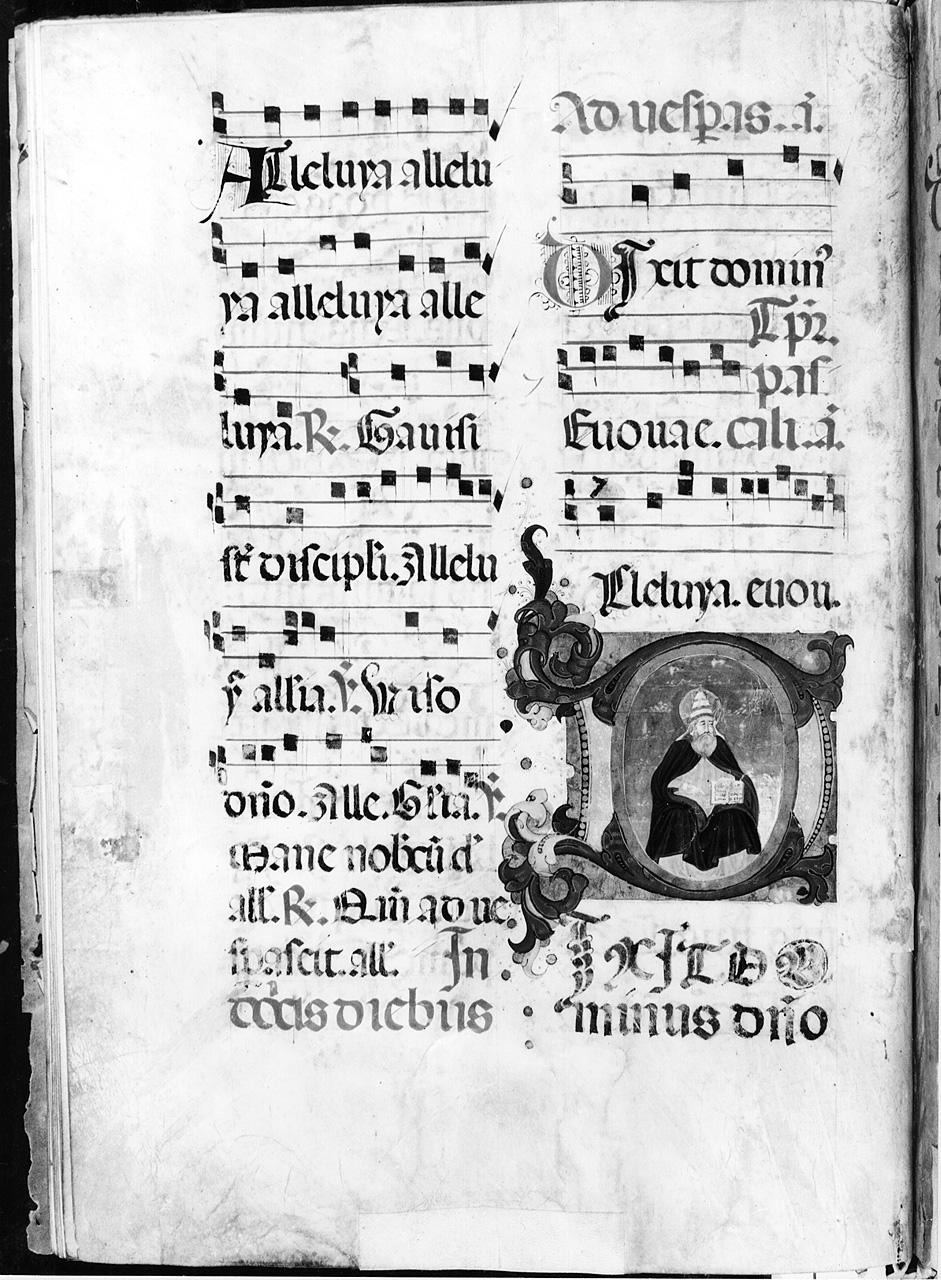 Alleluya allelu
ya alleluya alle
luya. R. Gauisi
st discipli. Allelu
y allia. V. Uiso
dño. Alle. Glia. V.
Mane nobcũ d'
all. R. Qm̃ adue
spascit. all. In
diebus
Ad uesp̱as. ã.
DIxit domin⁹
Tp̃r.
pas
Euouae. cali. ã.
Lleluya. euou.
IXIT DO
minus dño